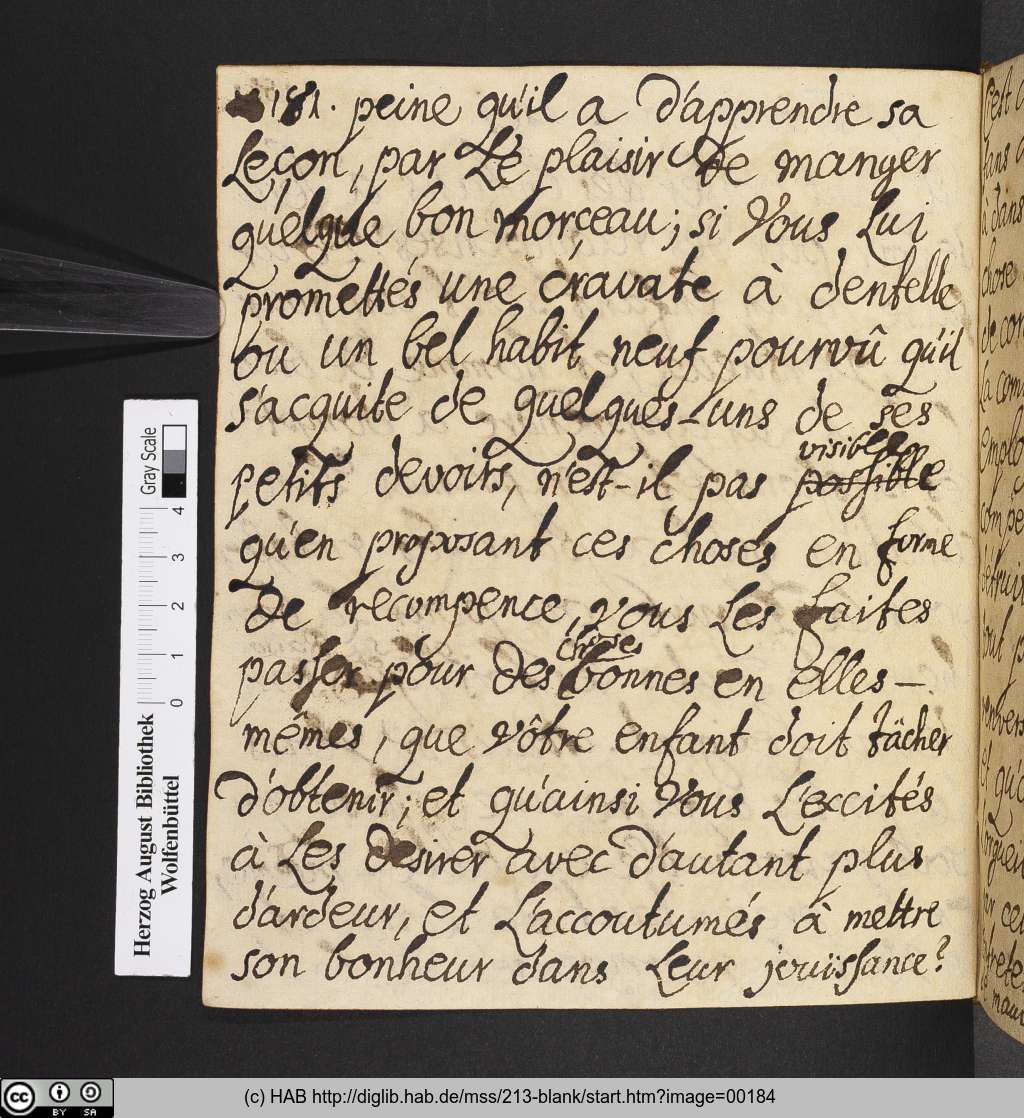 181. peine qu'il a d'apprendre sa
Leçon, par Le plaisir de manger
quelque bon morçeau; si Vous Lui
promettés une cravate à dentelle
ou un bel habit neuf pourvû qu'il
s'acquite de quelques-uns de ses
visible
petits devoirs, n'est-il pas possible
qu'en proposant ces choses en forme
de recompence, vous Les faites
choses
passer pour des bonnes en elles-
mêmes, que vôtre enfant doit tâcher
d'obtenir; et qu'ainsi Vous L'excités
à Les desirer avec d'autant plus
d'ardeur, et L'accoutumés à mettre
son bonheur dans Leur jouïssance?
Gray Scale
0 1 2 3 4
Herzog August Bibliothek
Wolfenbüttel
cc BY SA
(c) HAB http://diglib.hab.de/mss/213-blank/start.htm?image=00184